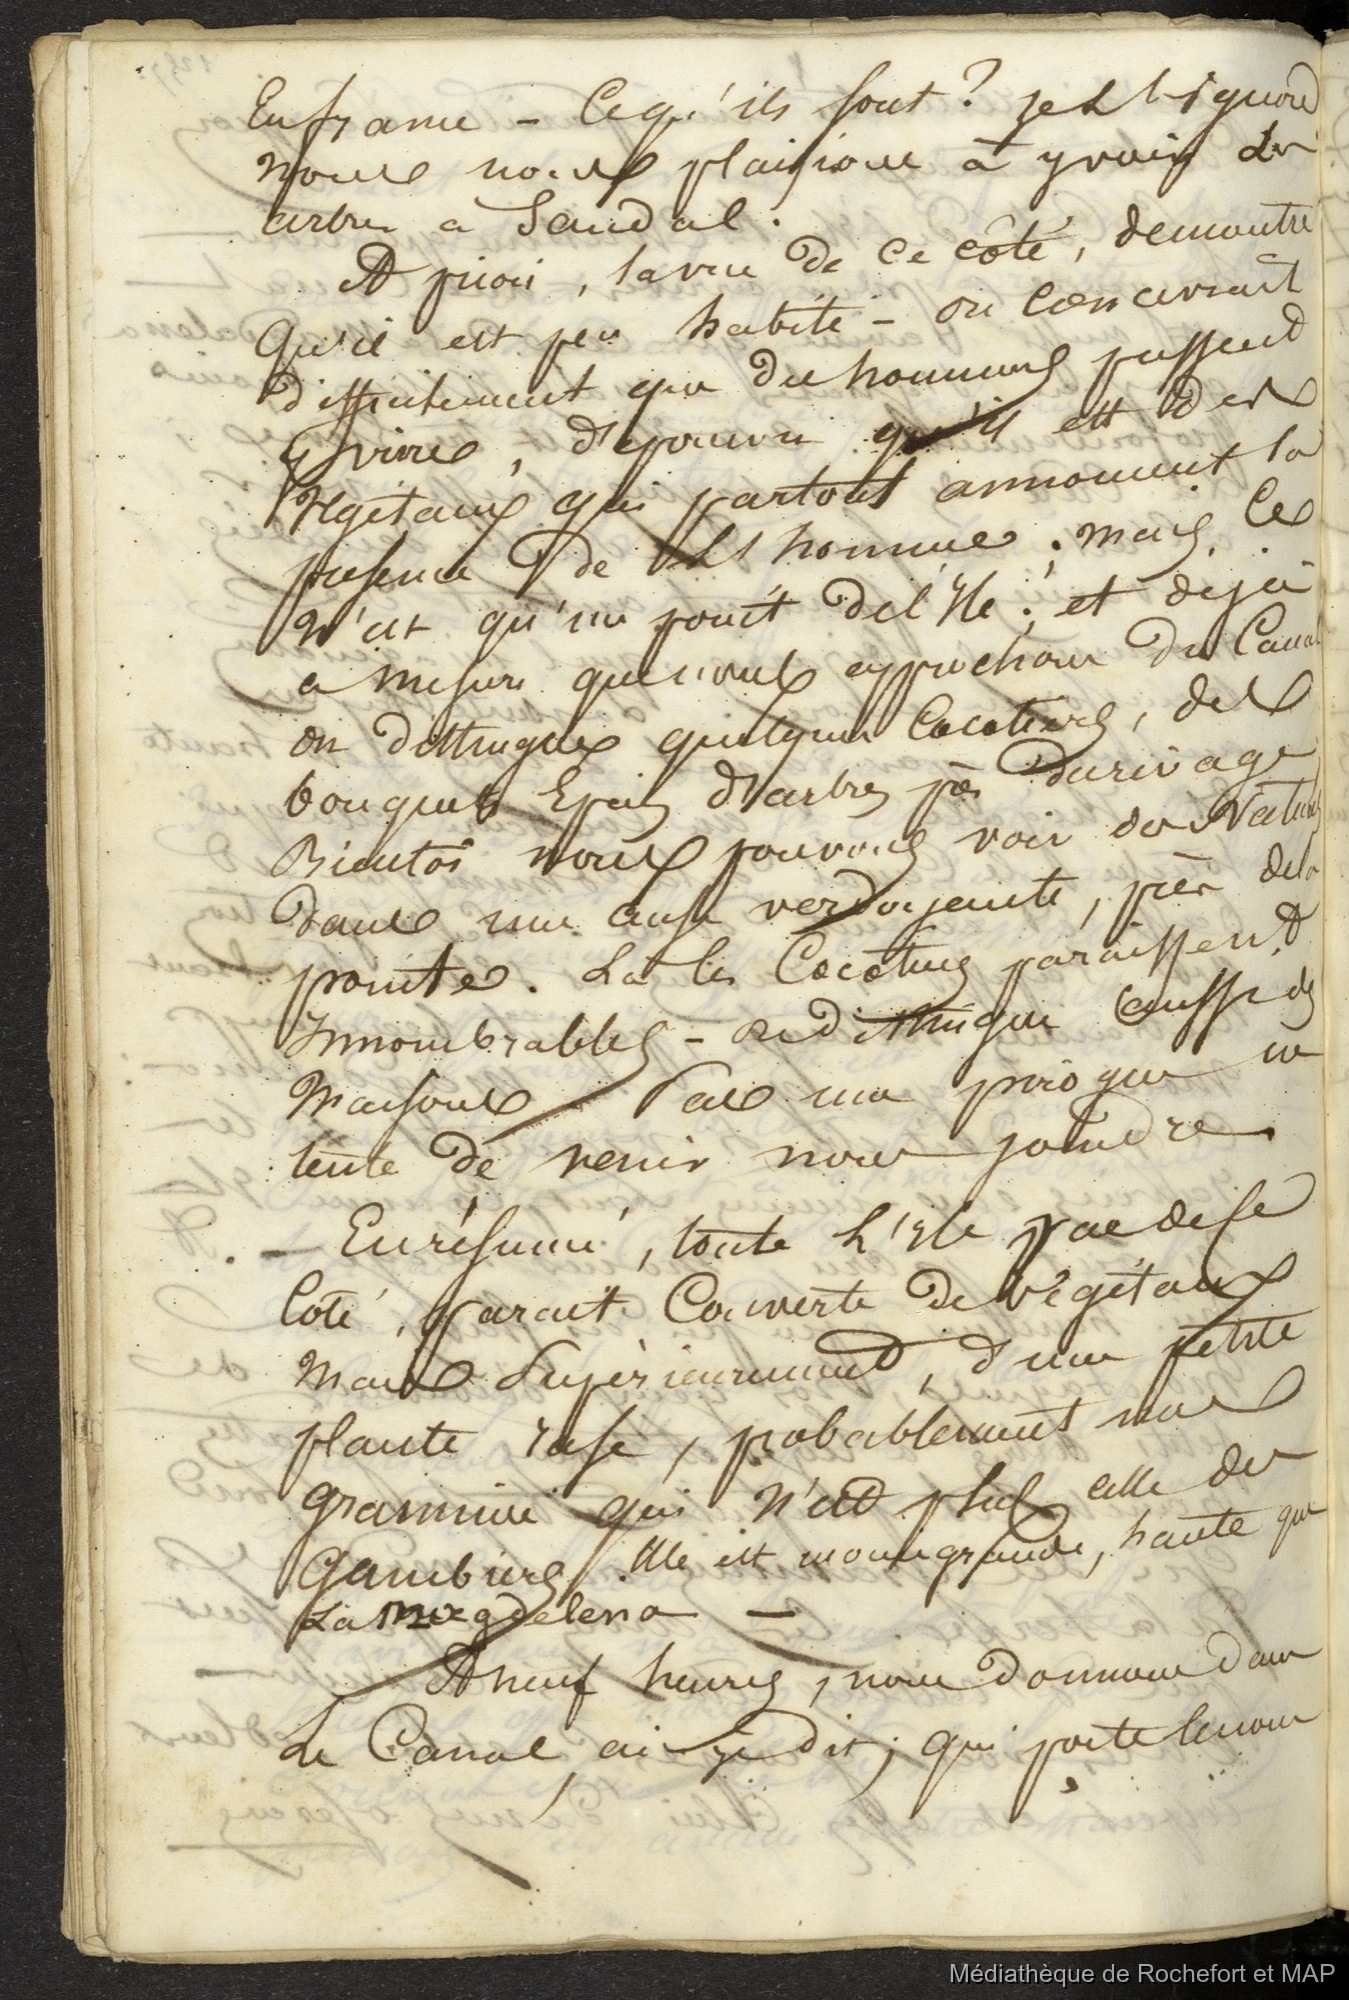 En france - Ce qu'ils sont? je l'ignore
nous nous plaisions à y voir des
arbres a Sandal.
A priori, la vue de ce côté, demontre
qu'il est peu habité - on concevrait
difficilement que des hommes pussent
y vivre, depourvu qu'il est des
Vegétaux qui partout annoncent la
presence de L'homme; mais, Ce
N'est qu'un point del'Ile; et deja
a mesure que nous approchons du Canal
on disttingue quelques Cocotiers, des
bouquets Epais d'arbres près du rivage
Bientot nous pouvons voir des Naturels
dans une anse verdoyante, près dela
pointe. La les Cocotiers paraissent
Innombrables - on disttingue aussi des
Maisons. Pas une pirogue ne
tente de venir nous joindre.
- En résumé, toute L'Ile par de Ce
Coté, parait Couverte de Végétaux
mais Supérieurement, d'une petite
plante rase, probablement une
graminée qui N'est plus celle des
Gambiers. Elle est moins grande, haute que
La Magdelena -
A neuf heures, nous donnons dans
Le Canal, ai-je dit; qui porte lenom
Médiathèque de Rochefort et MAP